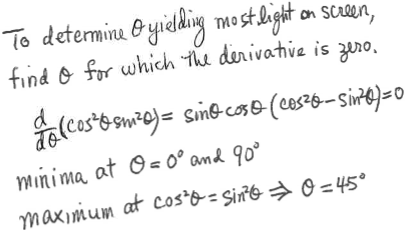 To determine θ yielding most light on screen,
find θ for which the derivative is zero.
d/dθ(cos²θ sin²θ) = sinθ cosθ (cos²θ - sin²θ) = 0
minima at θ = 0° and 90°
maximum at cos²θ = sin²θ ⇒ θ = 45°